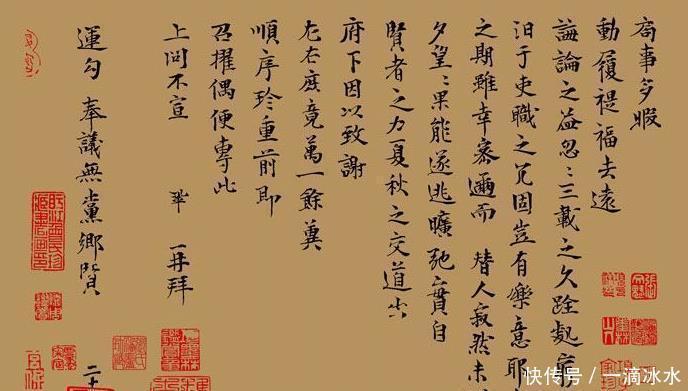 局事多暇
動履禔福去遠
誨論之益忽〻三載之久跧處窮
汩于吏職之冗固豈有樂意耶
之期雖幸密邇而 替人寂然未
夕望〻果能遂逃曠弛實自
賢者之力夏秋之交道出
府下因以致謝
左右庶竟萬一餘冀
順序珍重前即
召擢偶便專此
上問不宣 鞏 再拜
運勾 奉議無黨鄉賢 二十
快传号／一滴冰水